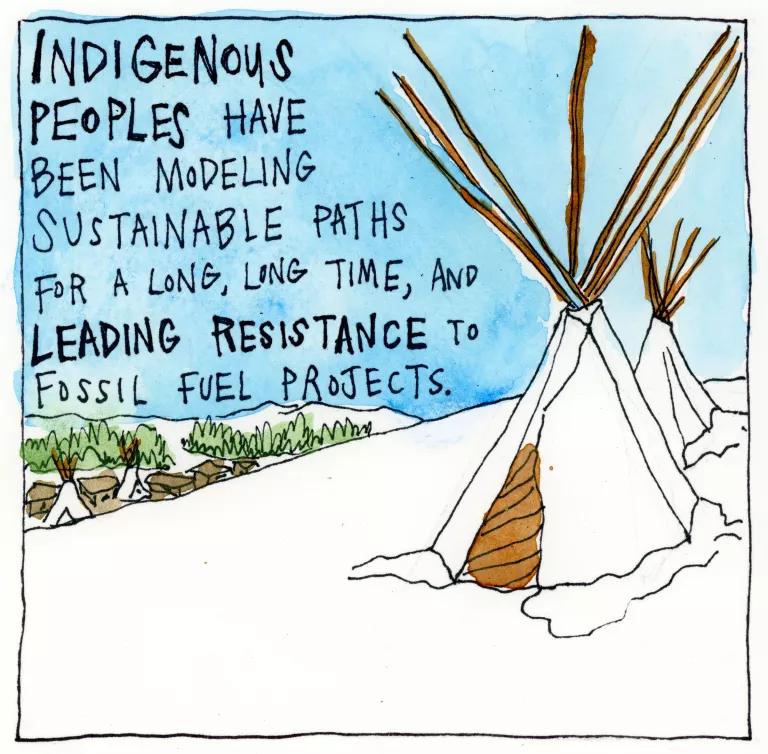 INDIGENOUS
PEOPLES HAVE
BEEN MODELING
SUSTAINABLE PATHS
FOR A LONG, LONG TIME, AND
LEADING RESISTANCE TO
FOSSIL FUEL PROJECTS.